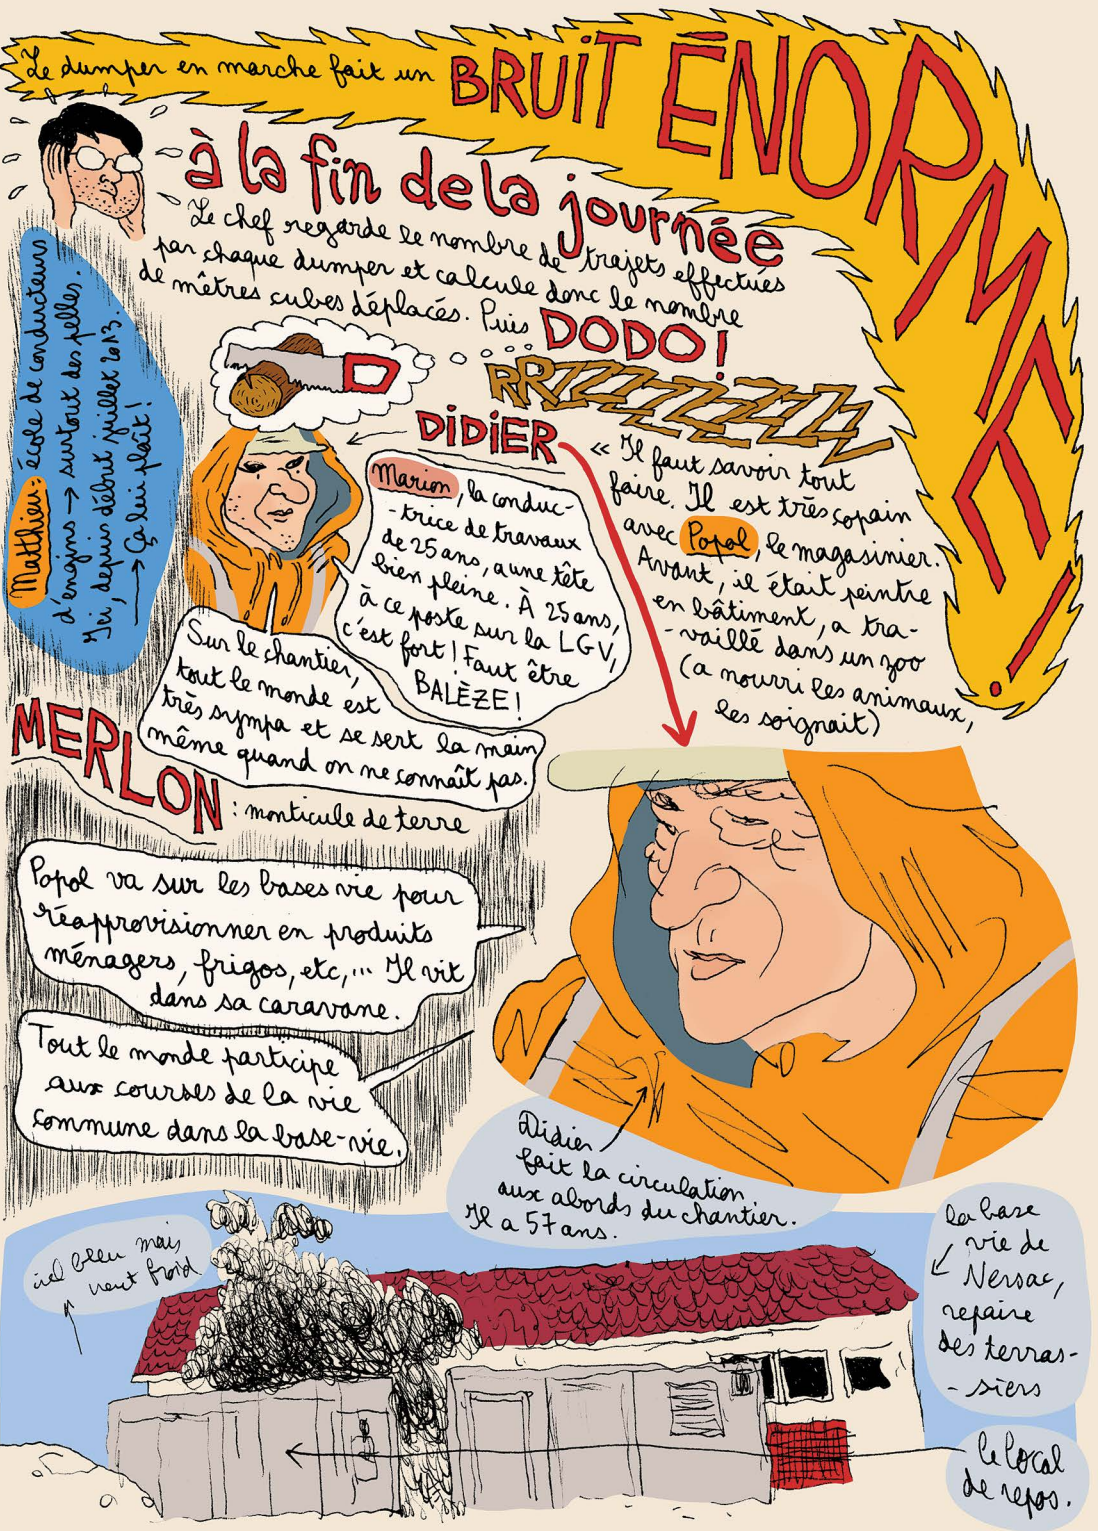 Le dumper en marche fait un BRUIT ÉNORME !
à la fin de la journée
Le chef regarde le nombre de trajets effectués
par chaque dumper et calcule donc le nombre
de mètres cubes déplacés. Puis DODO !
RRZZZZZZZZ
Matthieu : école de conducteurs
d'engins → surtout des pelles.
Ici, depuis début juillet 2013.
→ Ça lui plaît !
DIDIER
Marion, la conduc-
-trice de travaux
de 25 ans, a une tête
bien pleine. À 25 ans,
à ce poste sur la LGV,
c'est fort ! Faut être
BALÈZE !
« Il faut savoir tout
faire. Il est très copain
avec Popol, le magasinier.
Avant, il était peintre
en bâtiment, a tra-
-vaillé dans un zoo
(a nourri les animaux,
les soignait)
Sur le chantier,
tout le monde est
très sympa et se sert la main
même quand on ne connaît pas.
MERLON : monticule de terre
Popol va sur les bases vie pour
réapprovisionner en produits
ménagers, frigos, etc,... Il vit
dans sa caravane.
Tout le monde participe
aux courses de la vie
commune dans la base-vie.
Didier
fait la circulation
aux abords du chantier.
Il a 57 ans.
ciel bleu mais
vent froid
la base
vie de
Nersac,
repaire
des terras-
-siers
le local
de repos.